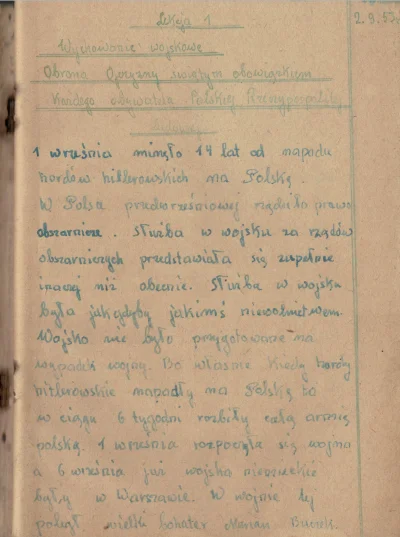 Lekcja 1
2.9.53
Wychowanie wojskowe
Obrona Ojczyzny świętym obowiązkiem
każdego obywatela Polskiej Rzeczypospolitej
1 września minęło 14 lat od napadu
hordów hitlerowskich na Polskę.
W Polsce przedwrześniowej rządziło prawo
obszarnicze. Służba w wojsku za rządów
obszarniczych przedstawiała się zupełnie
inaczej niż obecnie. Służba w wojsku
była jak gdyby jakimś niewolnictwem.
Wojsko nie było przygotowane na
wypadek wojny. Bo właśnie kiedy hordy
hitlerowskie napadły na Polskę to
w ciągu 6 tygodni rozbiły całą armię
polską. 1 września rozpoczęła się wojna
a 6 września już wojska niemieckie
były w Warszawie. W wojnie tej
poległ wielki bohater Marian Buczek.